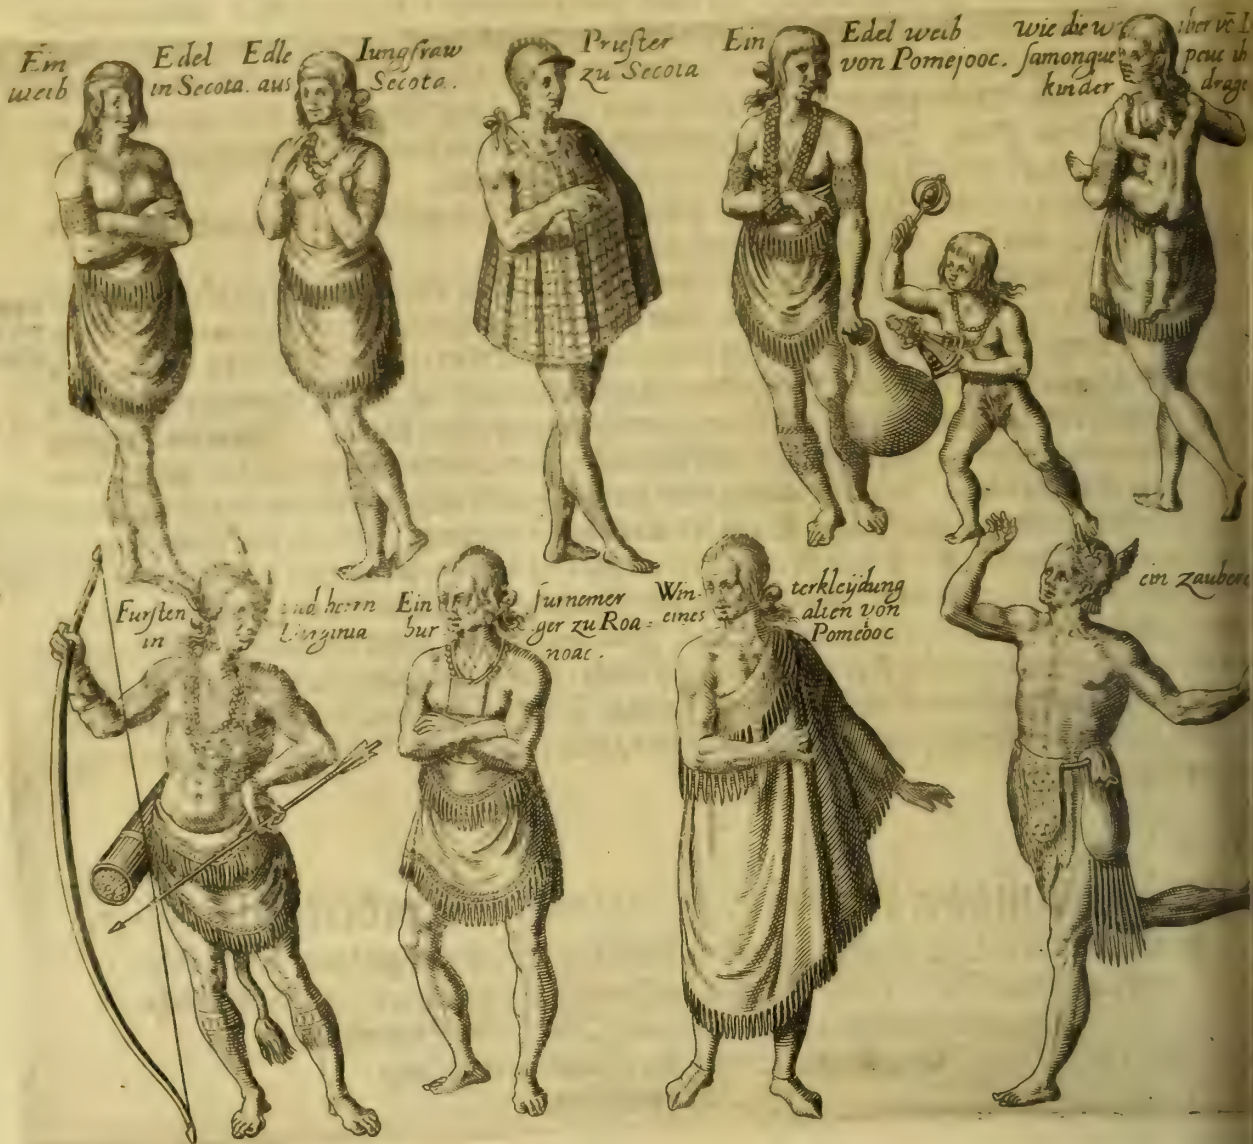 Ein Edel
weib in Secota.
Edle Iungfraw
aus Secota.
Priester
zu Secota
Ein Edel weib
von Pomejooc.
wie die
kinder
Fursten und herrn
in Virginia
Ein furnemer
bur ger zu Roa=
noac.
Win- terkleÿdung
eines alten von
Pomeiooc
ein